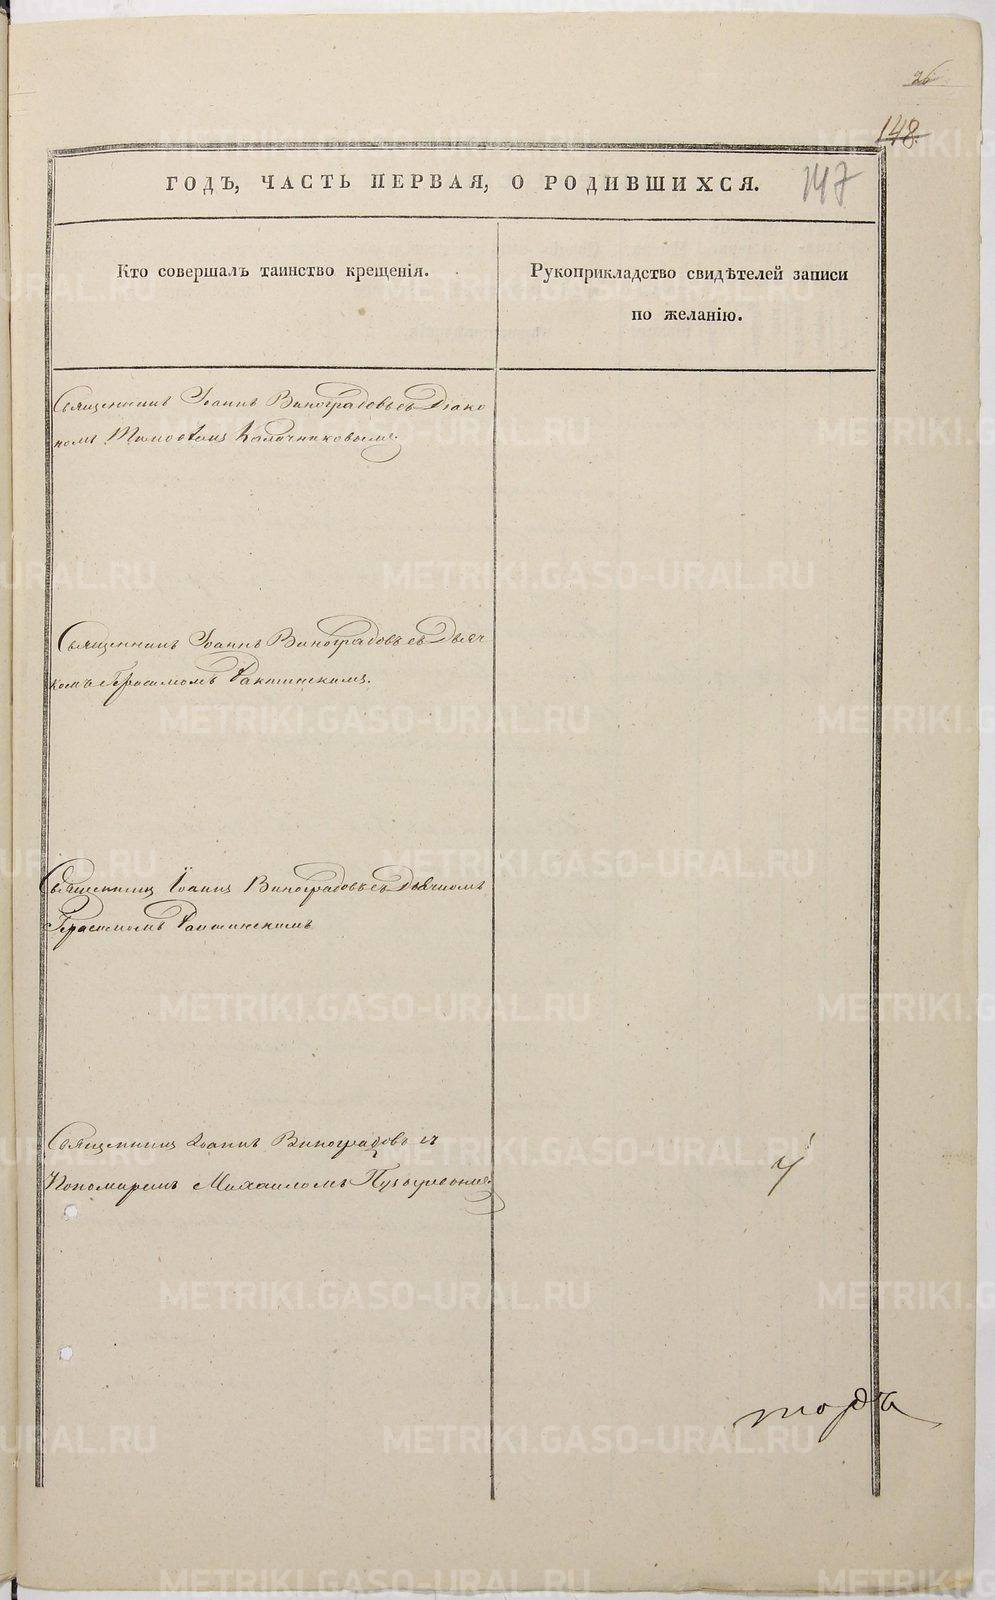 26
148.
147
ГОДЪ, ЧАСТЬ ПЕРВАЯ, О РОДИВШИХСЯ.
Кто совершалъ таинство крещенія.
Рукоприкладство свидѣтелей записи
по желанію.
Священникъ Іоаннъ Виноградовъ съ Діако
номъ Тимофѣемъ Калачниковымъ.
Священникъ Іоаннъ Виноградовъ съ Дьяч
комъ Герасимомъ
Священникъ Іоаннъ Виноградовъ съ Дьячкомъ
Герасимомъ
Священникъ Іоаннъ Виноградовъ съ
Пономаремъ Михаиломъ
METRIKI.GASO-URAL.RU